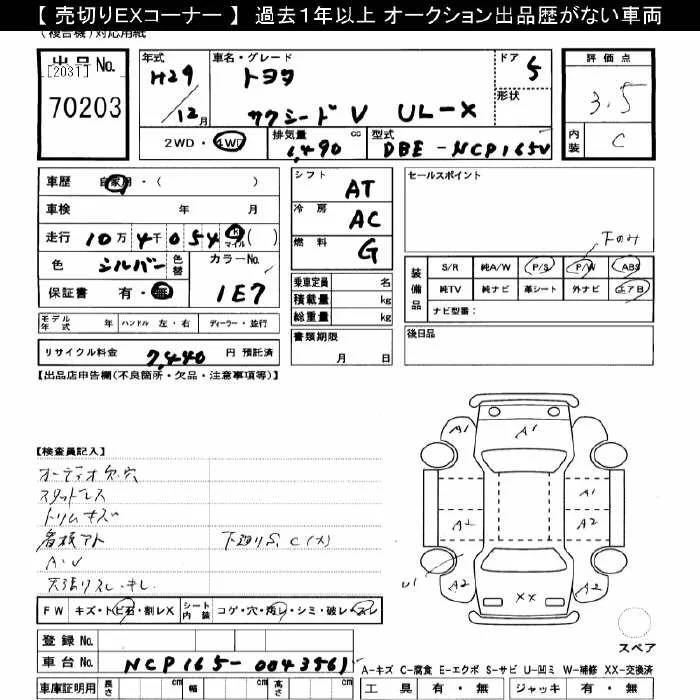 【 売切りEXコーナー 】 過去1年以上 オークション出品歴がない車両
(複合機)対応用紙
出品No.
[2031]
70203
年式 H29/12月
車名・グレード トヨタ
サクシードV UL-X
ドア 5
形状
評価点 3.5
内装 C
2WD・4WD
排気量 1,490 cc
型式 DBE-NCP165V
車歴 自家用・( )
車検 年 月
走行 10万4千0549 マイル( )
色 シルバー 色替 カラーNo.
保証書 有・無 1E7
シフト AT
冷房 AC
燃料 G
乗車定員 名
積載量 kg
総重量 kg
書類期限
月 日
セールスポイント
下のみ
装備品 S/R 純A/W P/S P/W ABS
純TV 純ナビ 革シート 外ナビ エアB
ナビ型番:
後日品
モデル年式 年 ハンドル 左・右 ディーラー・並行
リサイクル料金 7,440 円 預託済
【出品店申告欄(不良箇所・欠品・注意事項等)】
【検査員記入】
オーディオ欠.穴
スタッドレス
トリムキズ
看板アト 下廻りS.C(大)
A.U
天張りスレ.キレ
A1 A1
A1
A2 A2
U1 A2 A2
XX
FW キズ・トビ石・割レX シート内装 コゲ・穴・汚レ・シミ・破レ・スレ
スペア
登録No.
車台No. NCP165-0043561
A-キズ C-腐食 E-エクボ S-サビ U-凹ミ W-補修 XX-交換済
車庫証明用 長さ cm 幅 cm 高さ cm
工具 有・無 ジャッキ 有・無